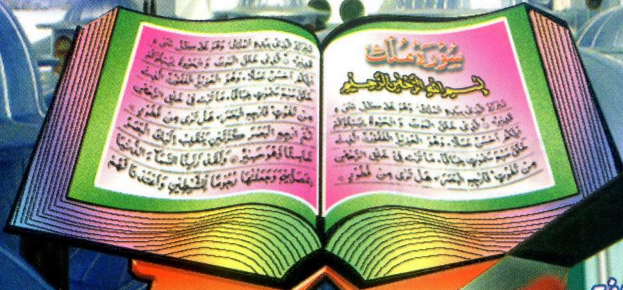 سُورَة مُلك
بسم الله الرحمن الرحيم
تبرك الذي بيده الملك وهو على كل شيء
قدير الذي خلق الموت و الحيوة ليبلوكم
ايكم احسن عملا وهو العزيز الغفور الذي
خلق سبع سموت طباقا ما ترى في خلق الرحمن
من تفوت فارجع البصر هل ترى من فطور
تبرك الذي بيده الملك وهو على كل شيء
قدير الذي خلق الموت و الحيوة ليبلوكم
ايكم احسن عملا وهو العزيز الغفور الذي
خلق سبع سموت طباقا ما ترى في خلق الرحمن
من تفوت فارجع البصر هل ترى من فطور
ثم ارجع البصر كرتين ينقلب اليك البصر
خاسئا وهو حسير ولقد زينا السماء الدنيا
بمصابيح وجعلنها رجوما للشيطين واعتدنا لهم